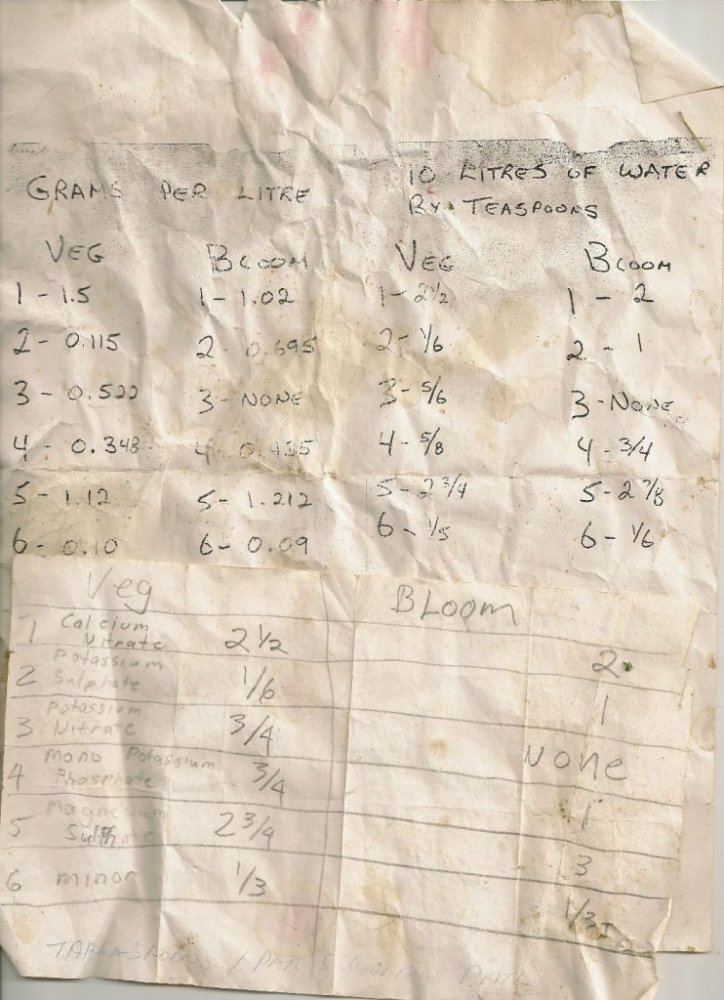 GRAMS PER LITRE
10 LITRES OF WATER
BY TEASPOONS
VEG BLOOM VEG BLOOM
1 - 1.5 1 - 1.02 1 - 2 1/2 1 - 2
2 - 0.115 2 - 0.695 2 - 1/6 2 - 1
3 - 0.522 3 - NONE 3 - 5/6 3 - NONE
4 - 0.348 4 - 0.435 4 - 5/8 4 - 3/4
5 - 1.12 5 - 1.212 5 - 2 3/4 5 - 2 7/8
6 - 0.10 6 - 0.09 6 - 1/5 6 - 1/6
Veg BLoom
1 Calcium Nitrate 2 1/2 2
2 Potassium Sulphate 1/6 1
3 Potassium Nitrate 3/4 None
4 Mono Potassium Phosphate 3/4 1
5 Magnesium Sulphate 2 3/4 3
6 minor 1/3 1/3